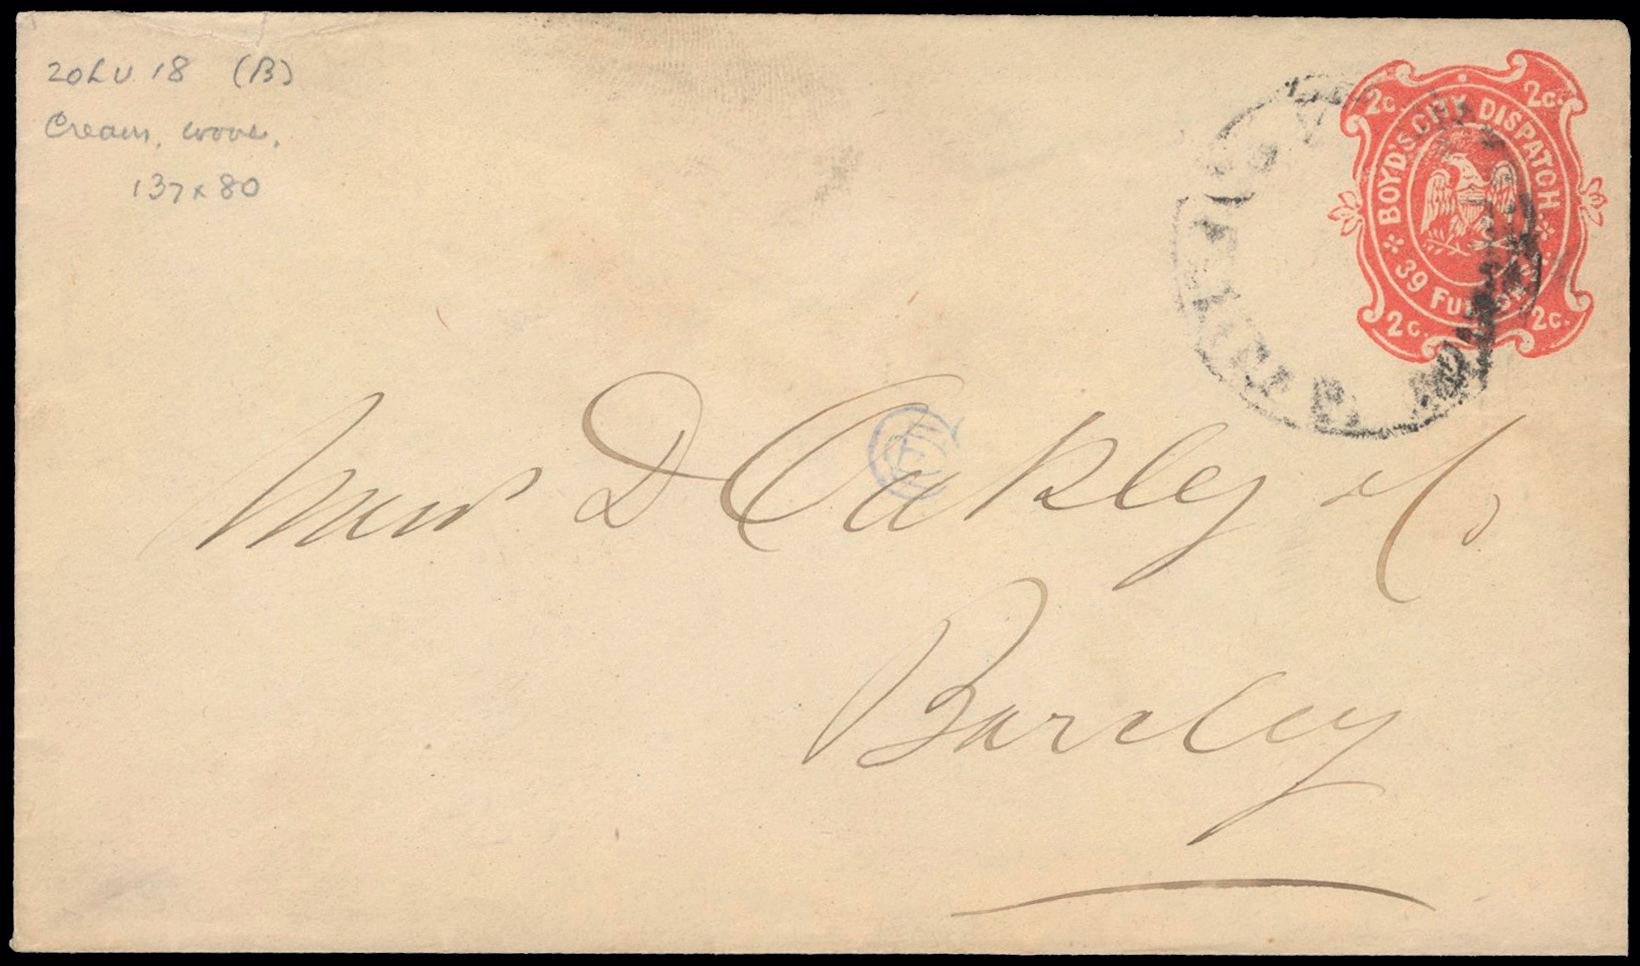 20LU 18 (B)
Cream, wove,
137 x 80
2c. 2c.
BOYD'S CITY DISPATCH.
39 FULTON
2c. 2c.
D Oakley & Co
Barcley